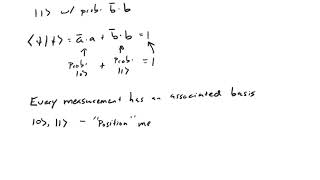 |1⟩ w/ prob. b̄·b
⟨ψ|ψ⟩ = ā·a + b̄·b = 1
prob. |0⟩ + prob. |1⟩ = 1
Every measurement has an associated basis
|0⟩, |1⟩ - "Position" me